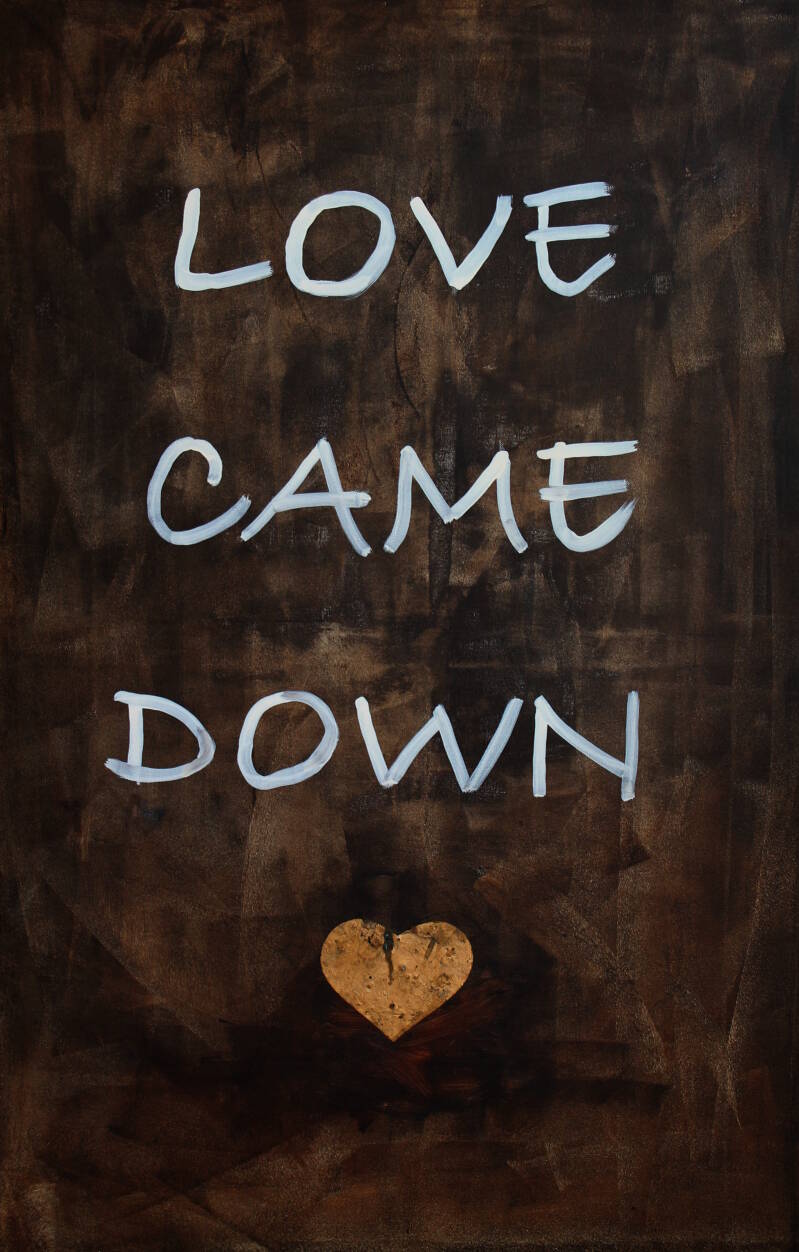 LOVE
CAME
DOWN